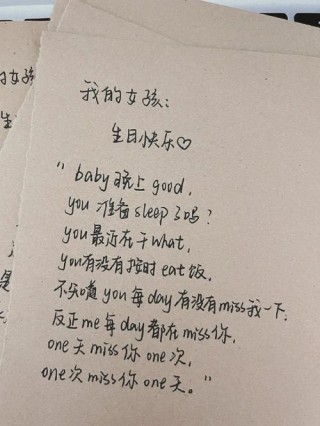 我的女孩：
生日快乐♡
"baby晚上good，
you准备sleep了吗？
you最近在干what，
you有没有按时eat饭，
不知道you每day有没有miss我一下，
反正me每day都在miss你，
one天miss你one次，
one次miss你one天。"
的女孩